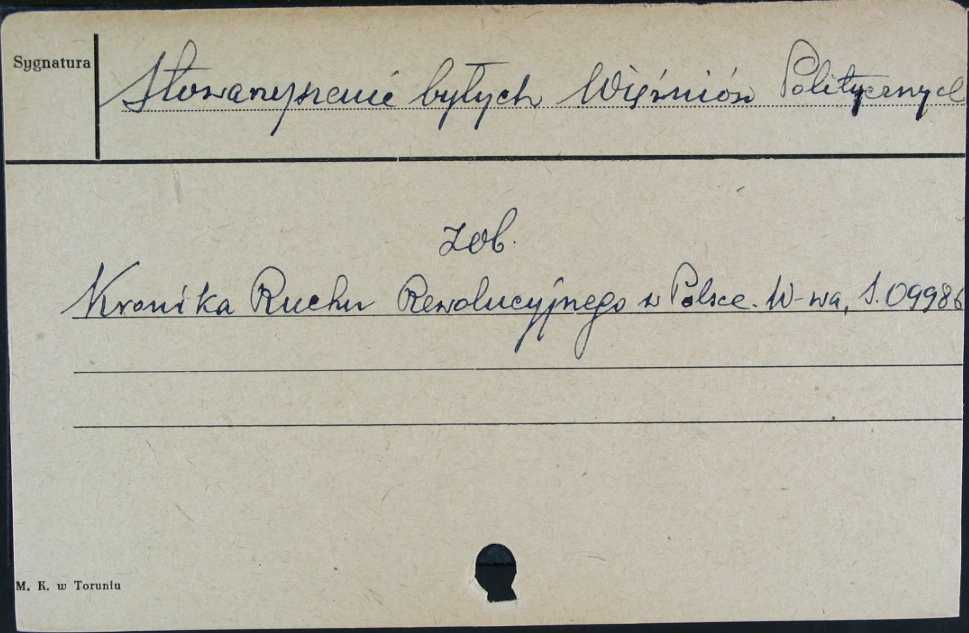 Sygnatura
Stowarzyszenie byłych Więźniów Politycznych
zob.
Kronika Ruchu Rewolucyjnego w Polsce. W-wa, S. 09986
M. K. w Toruniu